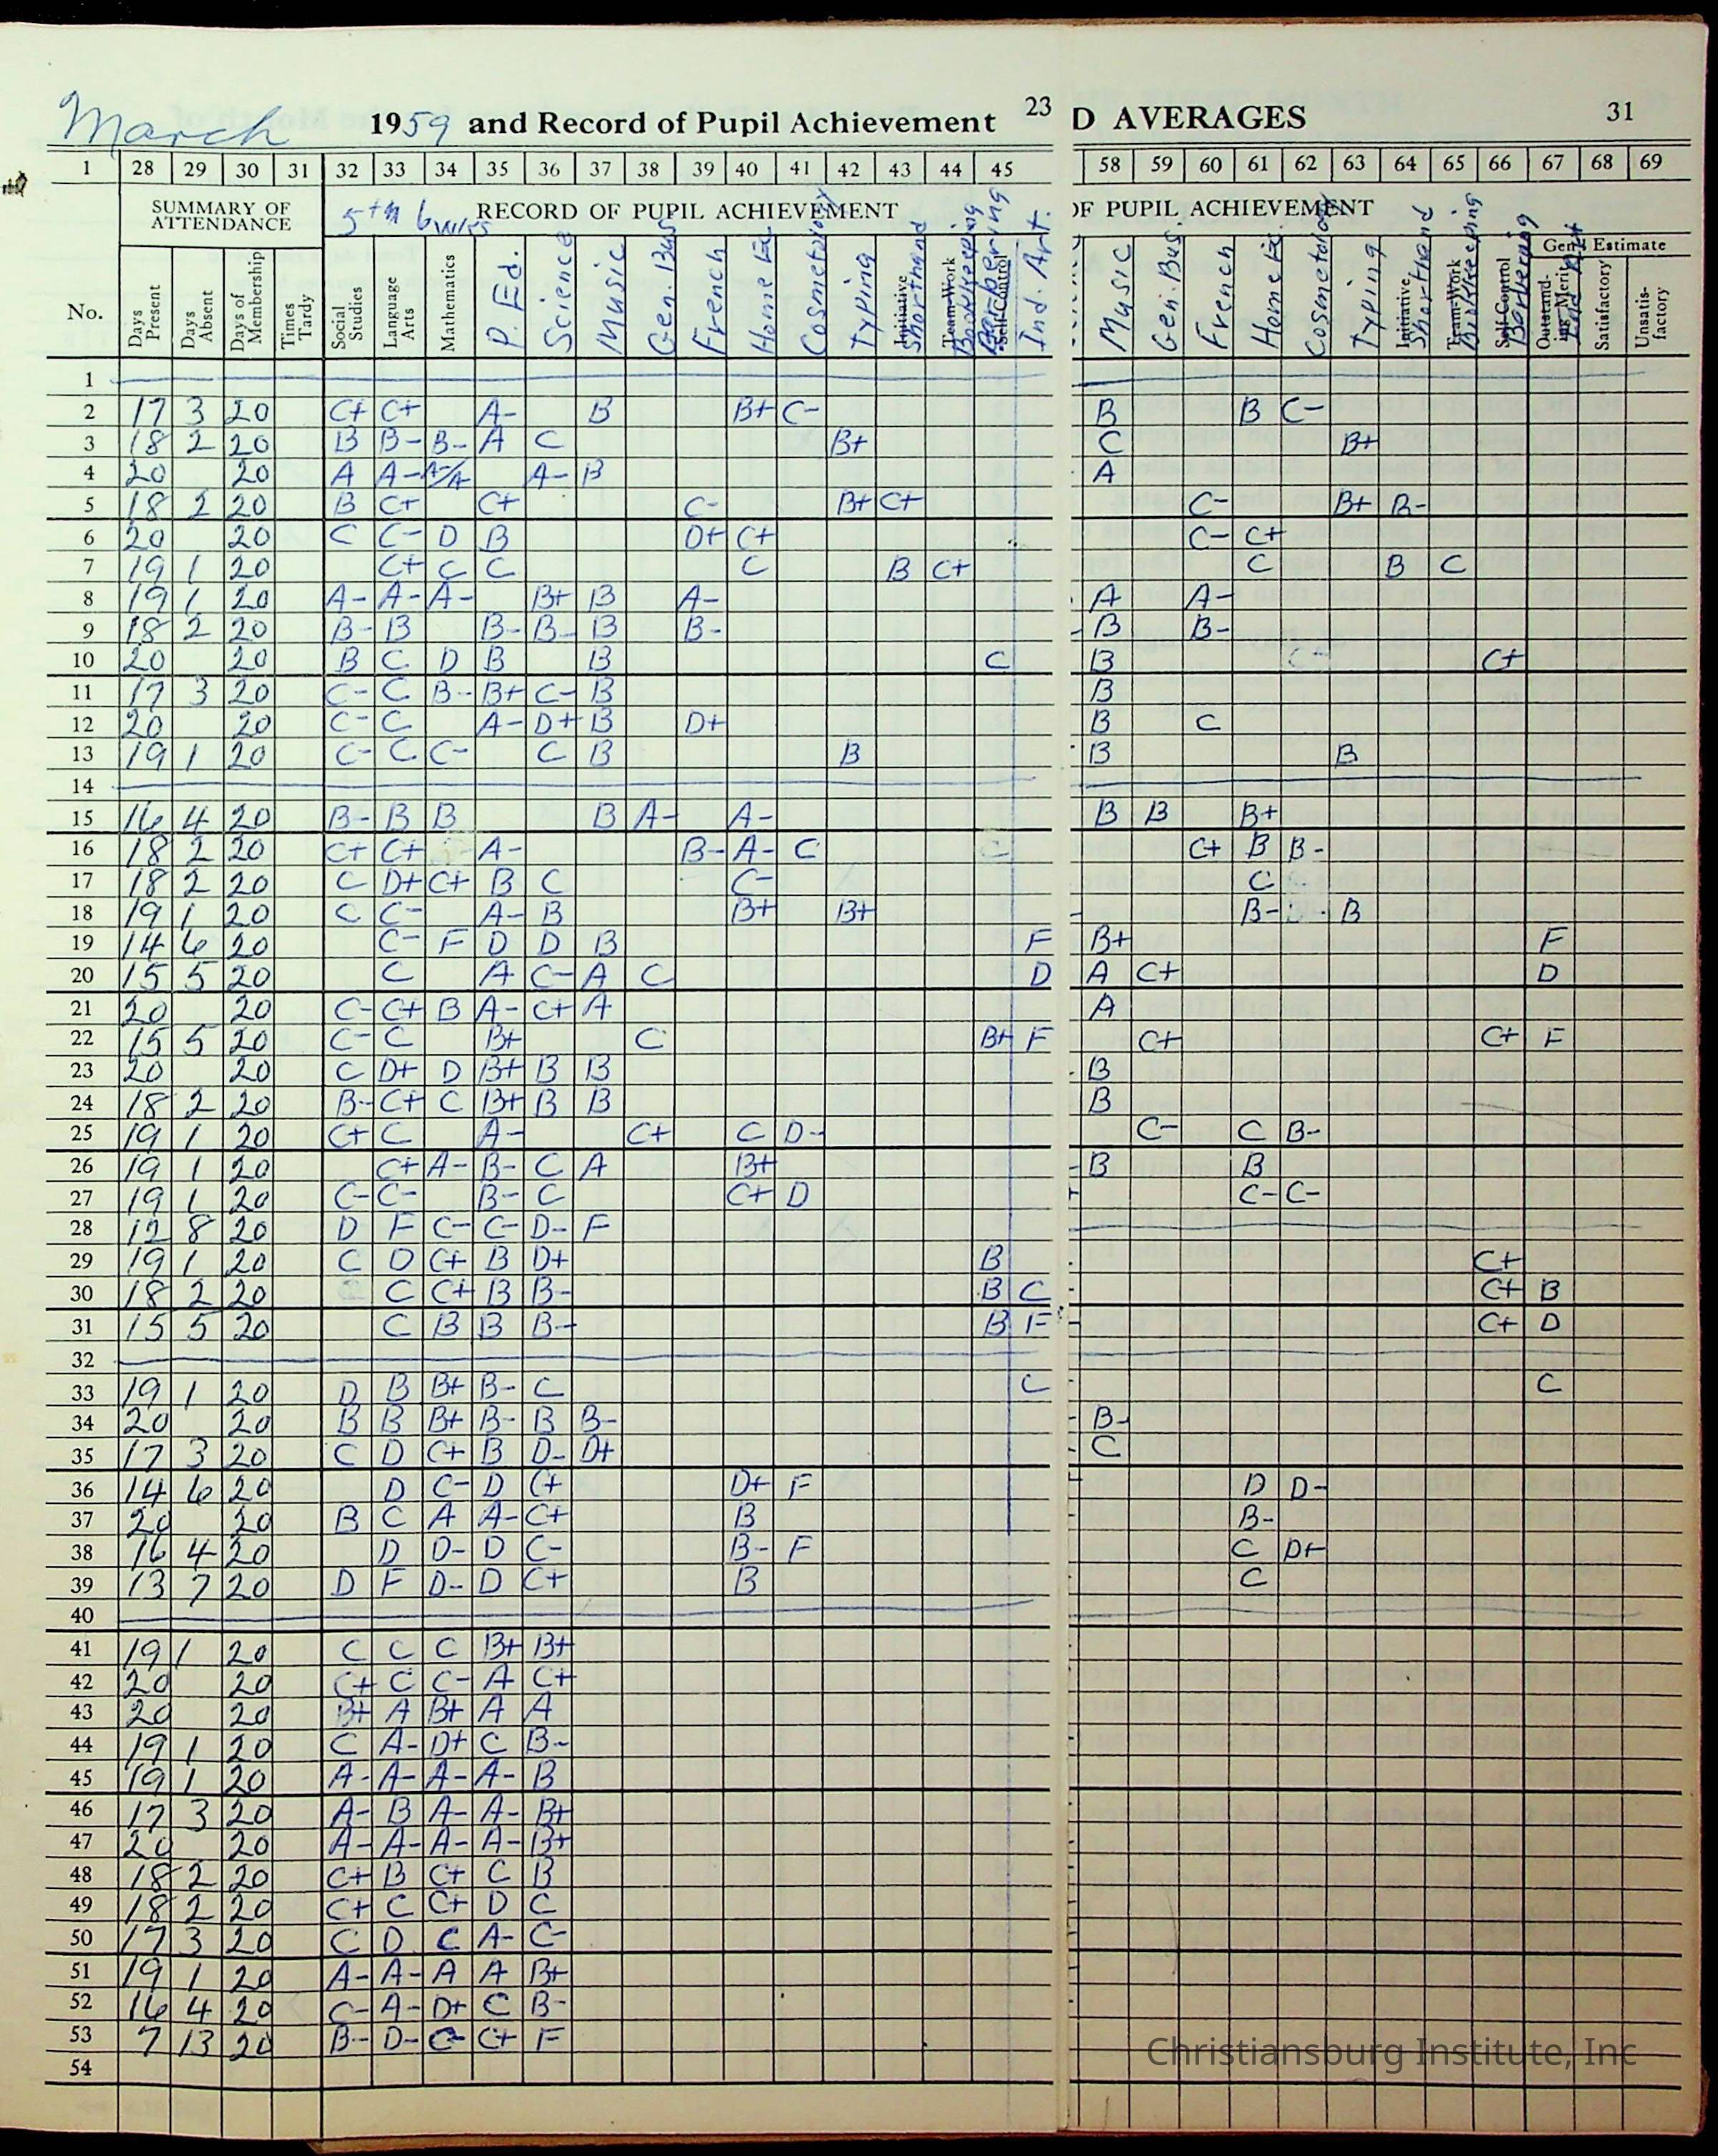 March 1959 and Record of Pupil Achievement 23 D AVERAGES 31
1 28 29 30 31 32 33 34 35 36 37 38 39 40 41 42 43 44 45 58 59 60 61 62 63 64 65 66 67 68 69
SUMMARY OF ATTENDANCE 5th 6 wks RECORD OF PUPIL ACHIEVEMENT OF PUPIL ACHIEVEMENT
Gen'l Estimate
No. Days Present Days Absent Days of Membership Times Tardy Social Studies Language Arts Mathematics P. Ed. Science Music Gen. Bus French Home Ec. Cosmetology Typing Initiative Shorthand Team-Work Bookkeeping Self-Control Barbering Ind. Art. Music Gen. Bus. French Home Ec. Cosmetology Typing Initiative Shorthand Team-Work Bookkeeping Self-Control Barbering Outstanding Merit Ind Art Satisfactory Unsatisfactory
1
2 17 3 20 C+ C+ A- B B+ C- B B C-
3 18 2 20 B B- B- A C B+ C B+
4 20 20 A A- A-/A A- B A
5 18 2 20 B C+ C+ C- B+ C+ C- B+ B-
6 20 20 C C- D B D+ C+ C- C+
7 19 1 20 C+ C C C B C+ C B C
8 19 1 20 A- A- A- B+ B A- A A-
9 18 2 20 B- B B- B- B B- B B-
10 20 20 B C D B B C B C+
11 17 3 20 C- C B- B+ C- B B
12 20 20 C- C A- D+ B D+ B C
13 19 1 20 C- C C- C B B B B
14
15 16 4 20 B- B B B A- A- B B B+
16 18 2 20 C+ C+ A- B- A- C C+ B B-
17 18 2 20 C D+ C+ B C C- C
18 19 1 20 C C- A- B B+ B+ B- B
19 14 6 20 C- F D D B F B+ F
20 15 5 20 C A C- A C D A C+ D
21 20 20 C- C+ B A- C+ A A
22 15 5 20 C- C B+ C B+ F C+ C+ F
23 20 20 C D+ D B+ B B B
24 18 2 20 B- C+ C B+ B B B
25 19 1 20 C+ C A- C+ C D- C- C B-
26 19 1 20 C+ A- B- C A B+ B B
27 19 1 20 C- C- B- C C+ D C- C-
28 12 8 20 D F C- C- D- F
29 19 1 20 C D C+ B D+ B C+
30 18 2 20 C C+ B B- B C C+ B
31 15 5 20 C B B B- B F C+ D
32
33 19 1 20 D B B+ B- C C C
34 20 20 B B B+ B- B B- B-
35 17 3 20 C D C+ B D- D+ C
36 14 6 20 D C- D C+ D+ F D D-
37 20 20 B C A A- C+ B B-
38 16 4 20 D D- D C- B- F C D+
39 13 7 20 D F D- D C+ B C
40
41 19 1 20 C C C B+ B+
42 20 20 C+ C C- A C+
43 20 20 B+ A B+ A A
44 19 1 20 C A- D+ C B-
45 19 1 20 A- A- A- A- B
46 17 3 20 A- B A- A- B+
47 20 20 A- A- A- A- B+
48 18 2 20 C+ B C+ C B
49 18 2 20 C+ C C+ D C
50 17 3 20 C D C A- C-
51 19 1 20 A- A- A A B+
52 16 4 20 C- A- D+ C B-
53 7 13 20 B- D- C- C+ F
54
Christiansburg Institute, Inc